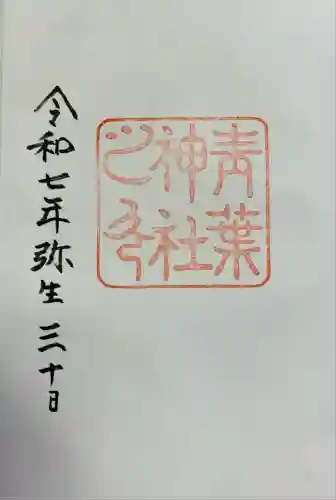 青葉
神社
令和七年弥生三十日